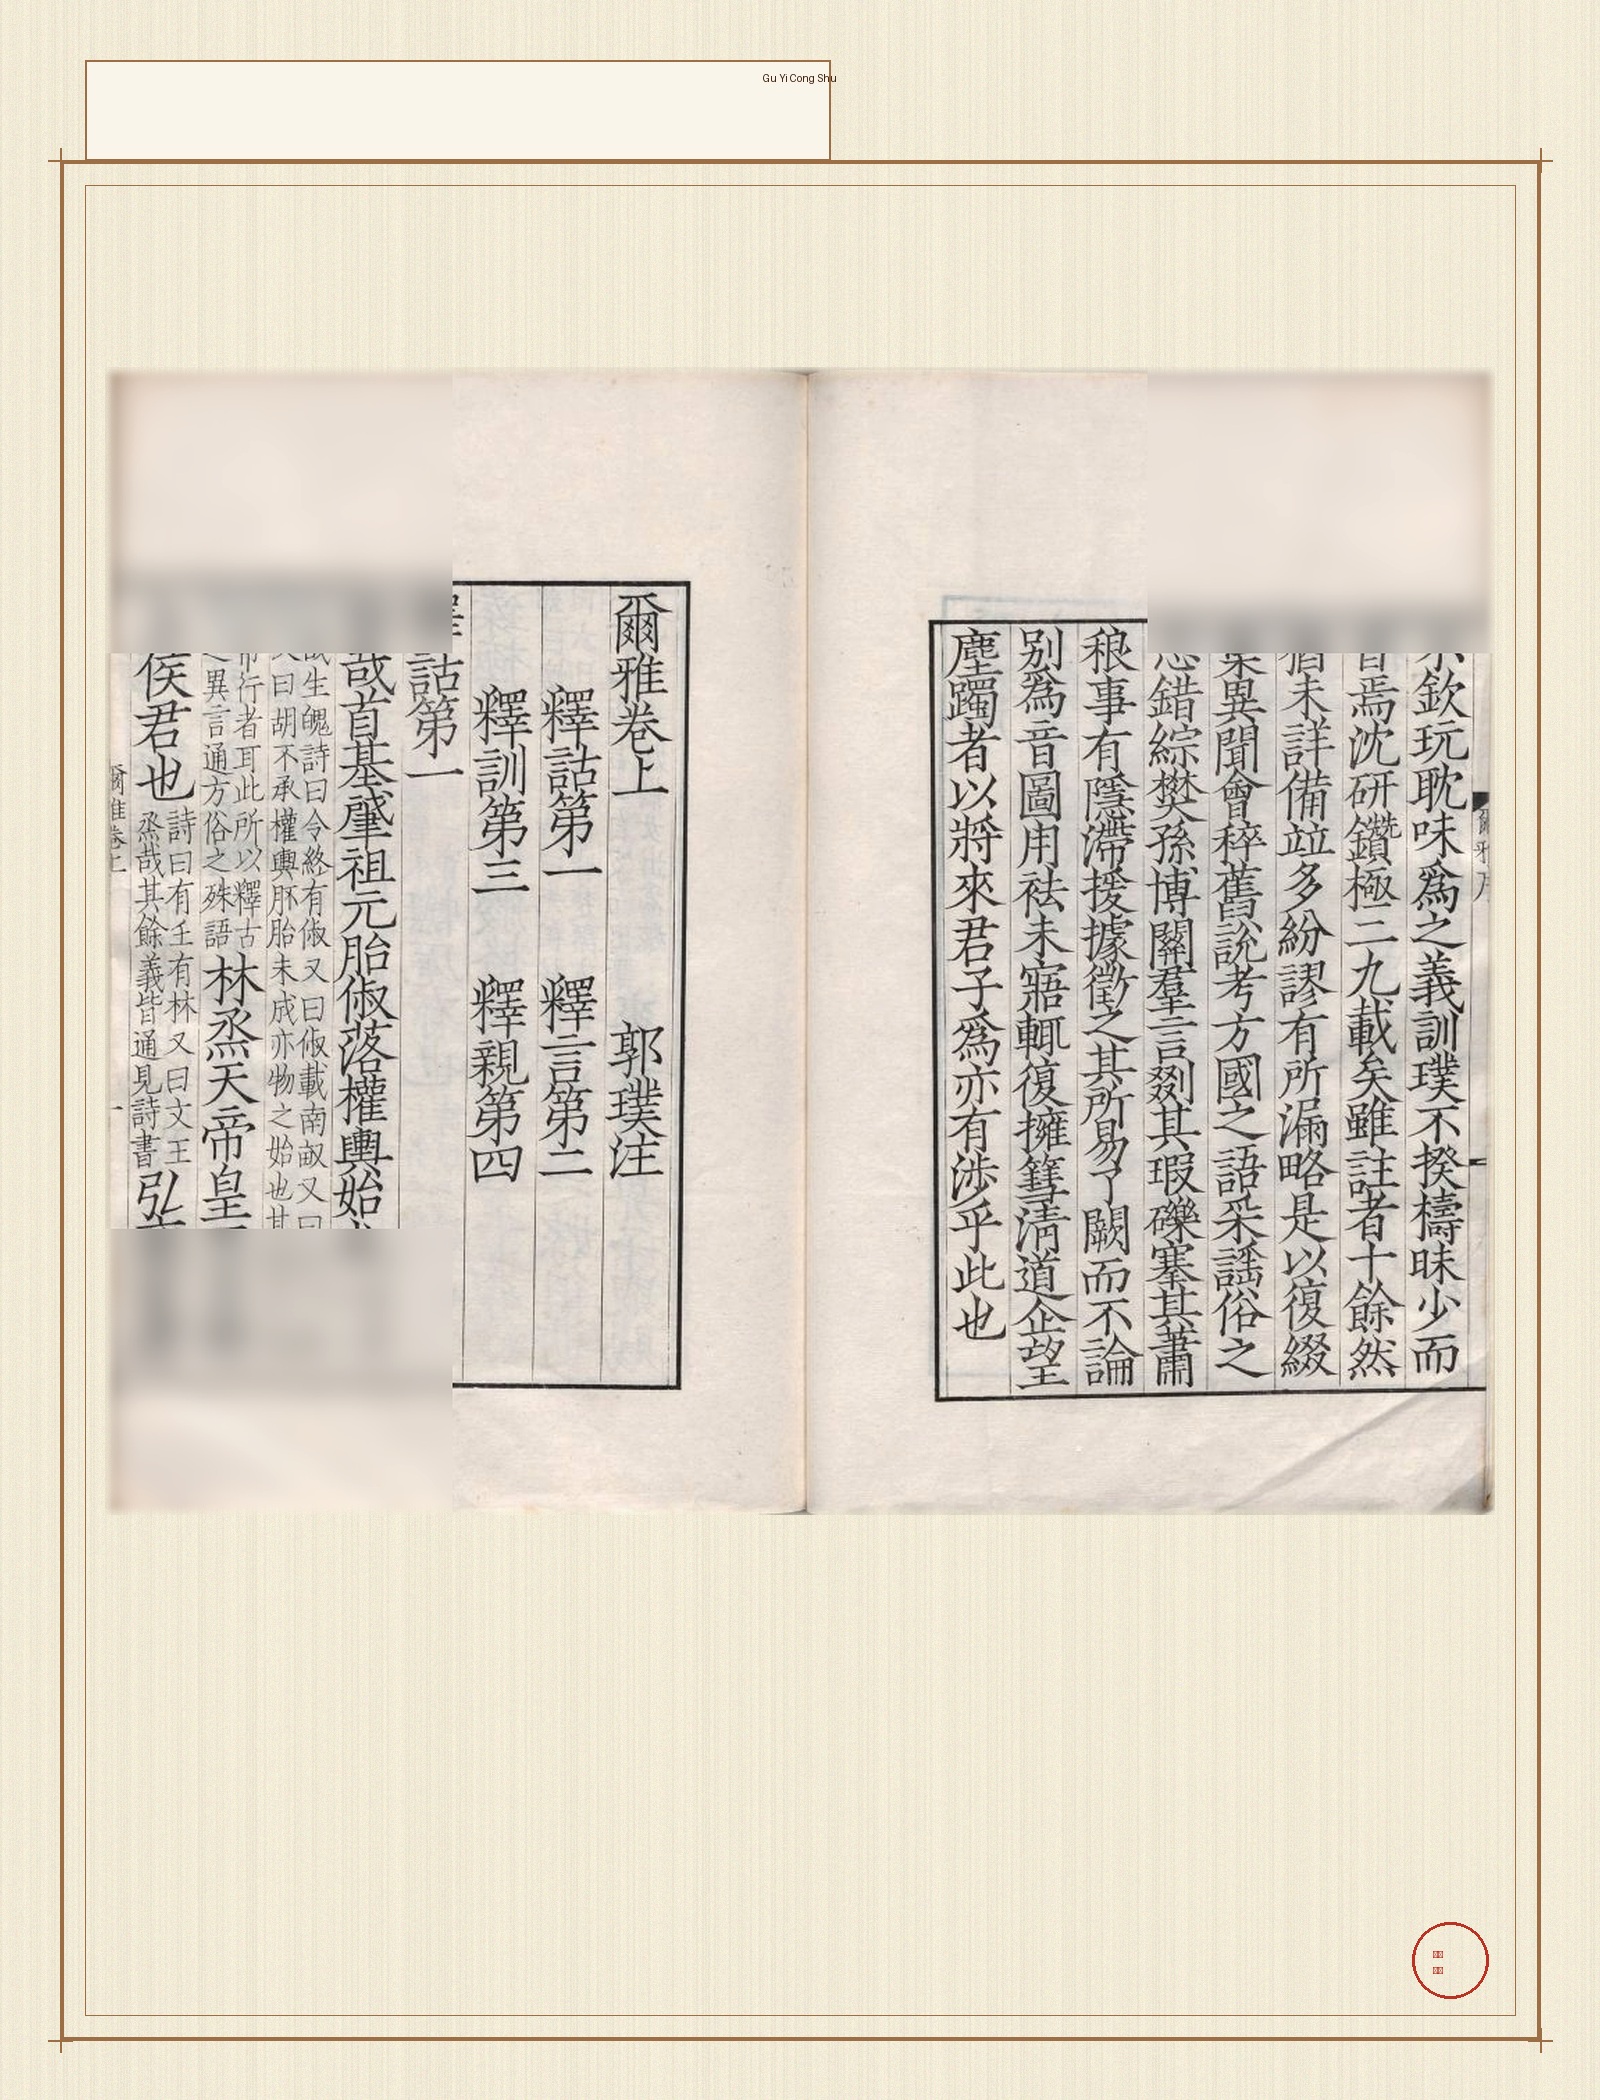 Gu Yi Cong Shu
欽玩耽味爲之義訓璞不揆檮昧少而
焉沈硏鑽極二九載矣雖註者十餘然
未詳備竝多紛謬有所漏略是以復綴
異聞會稡舊說考方國之語采謠俗之
錯綜樊孫博關羣言剟其瑕礫搴其蕭
稂事有隱滯援據徵之其所易了闕而不論
別爲音圖用袪未寤輒復擁篲淸道企望
塵躅者以將來君子爲亦有涉乎此也
爾雅卷上 郭璞注
釋詁第一 釋言第二
釋訓第三 釋親第四
詁第一
哉首基肇祖元胎俶落權輿始
生魄詩曰令終有俶又曰俶載南畝又曰
曰胡不承權輿胚胎未成亦物之始也其
行者耳此所以釋古
異言通方俗之殊語 林烝天帝皇
侯君也 詩曰有壬有林又曰文王
烝哉其餘義皆通見詩書 弘
爾雅卷上 一